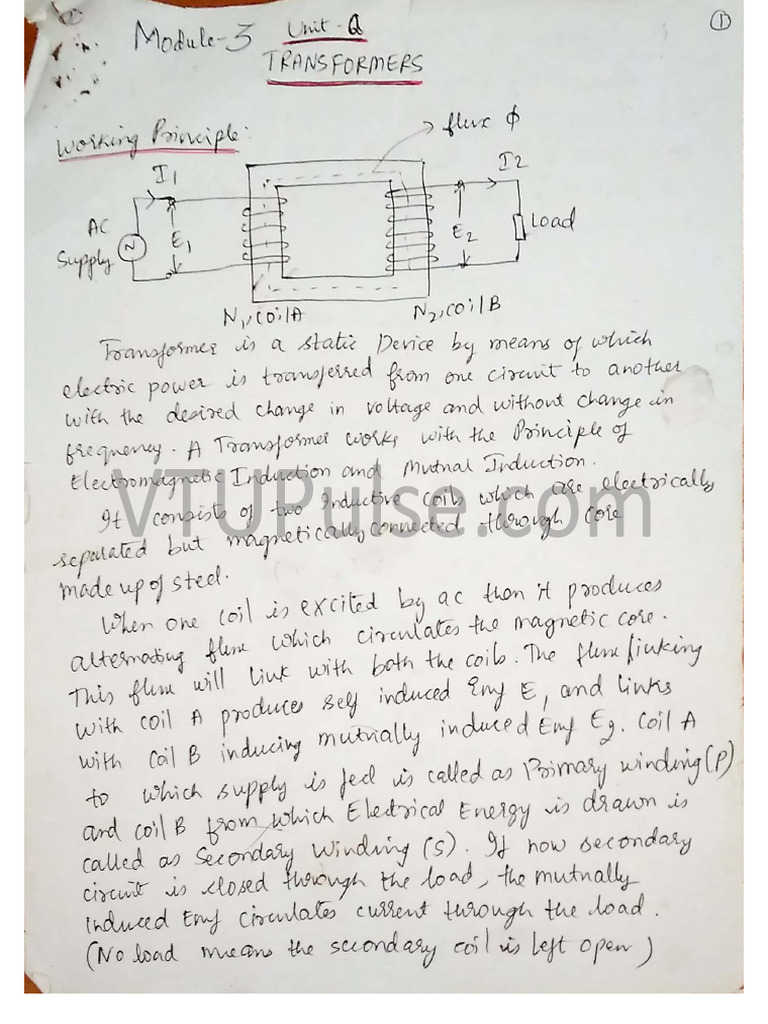 ①
Module-3 Unit-Q
TRANSFORMERS
Working Principle:
flux ϕ
I1
I2
AC
Supply
N
E1
E2
Load
N1, coil A
N2, coil B
Transformer is a static Device by means of which
electric power is transferred from one circuit to another
with the desired change in voltage and without change in
frequency. A Transformer works with the Principle of
Electromagnetic Induction and Mutual Induction.
It consists of two Inductive coils which are electrically
separated but magnetically connected through core
made up of steel.
VTUPulse.com
When one coil is excited by ac then it produces
alternating flux which circulates the magnetic core.
This flux will link with both the coils. The flux linking
with coil A produces self induced Emf E1 and links
with coil B inducing mutually induced Emf E2. Coil A
to which supply is fed is called as Primary winding (P)
and coil B from which Electrical Energy is drawn is
called as Secondary Winding (S). If now secondary
circuit is closed through the load, the mutually
induced Emf circulates current through the load.
(No load means the secondary coil is left open)